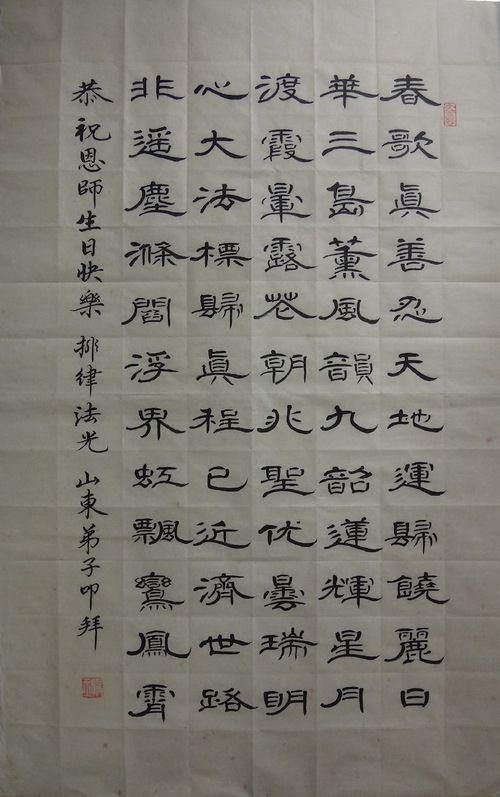 春歌眞善忍天地運歸饒麗日
華三島薰風韻九韶蓮輝星月
渡霞暈露花朝兆聖优曇瑞明
心大法標歸眞程已近濟世路
非遥塵滌閻浮界虹飄鸞鳳霄
恭祝恩師生日快樂 排律法光 山東弟子叩拜